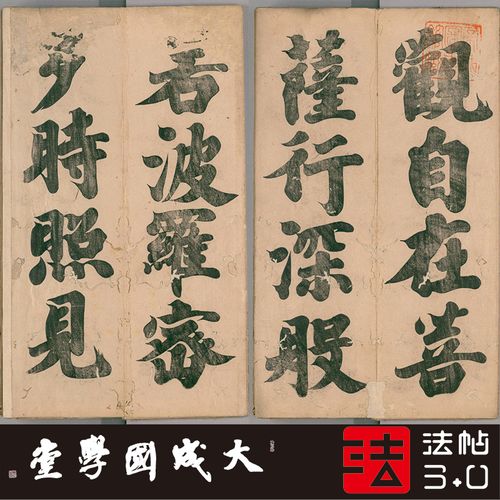 觀自在菩
薩行深般
若波羅蜜
多時照見
大成國學堂
法
法帖
3.0